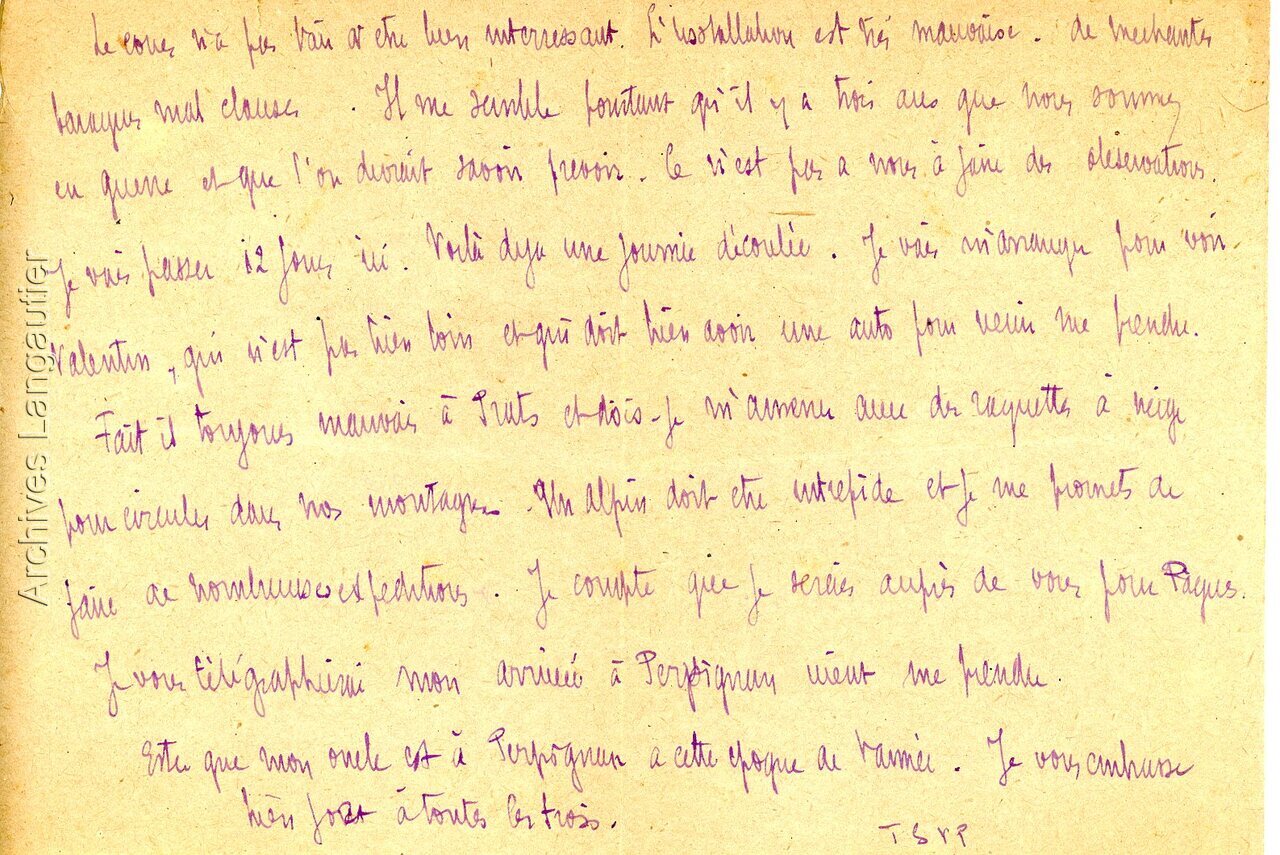 Le cours n'a pas l'air d'etre bien interressant. L'installation est très mauvaise. de mechantes
baraques mal clauses. Il me semble pourtant qu'il y a trois ans que nous sommes
en guerre et que l'on devrait savoir prevoir. Ce n'est pas a nous à faire des observations.
Je vais passer 12 jours ici. Voilà deja une journée découlée. Je vais m'arranger pour voir
Valentin, qui n'est pas bien loin et qui doit bien avoir une auto pour venir me prendre.
Fait il toujours mauvais à Prats et dois-je m'amener avec des raquettes à neige
pour circuler dans nos montagnes. Un Alpin doit etre intrepide et je me promets de
faire de nombreuses expeditions. Je compte que je serais auprès de vous pour Pâques.
Je vous télégraphierai mon arrivée à Perpignan vient me prendre.
Este que mon oncle est à Perpignan a cette epoque de l'année. Je vous embrasse
bien fort à toutes les trois.
TSVP
Archives Langautier